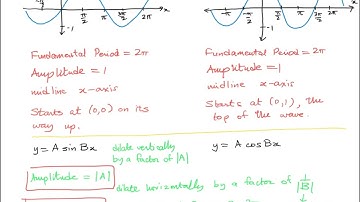 π/2 π 3π/2 2π x
-π π/2 π 3π/2 2π x
-1 -1
Fundamental Period = 2π
Amplitude = 1
midline x-axis
Starts at (0,0) on its
way up.
Fundamental Period = 2π
Amplitude = 1
midline x-axis
Starts at (0,1), the
top of the wave.
y = A sin Bx dilate vertically y = A cos Bx
by a factor of |A|
Amplitude = |A|
dilate horizontally by a factor of |1/B|